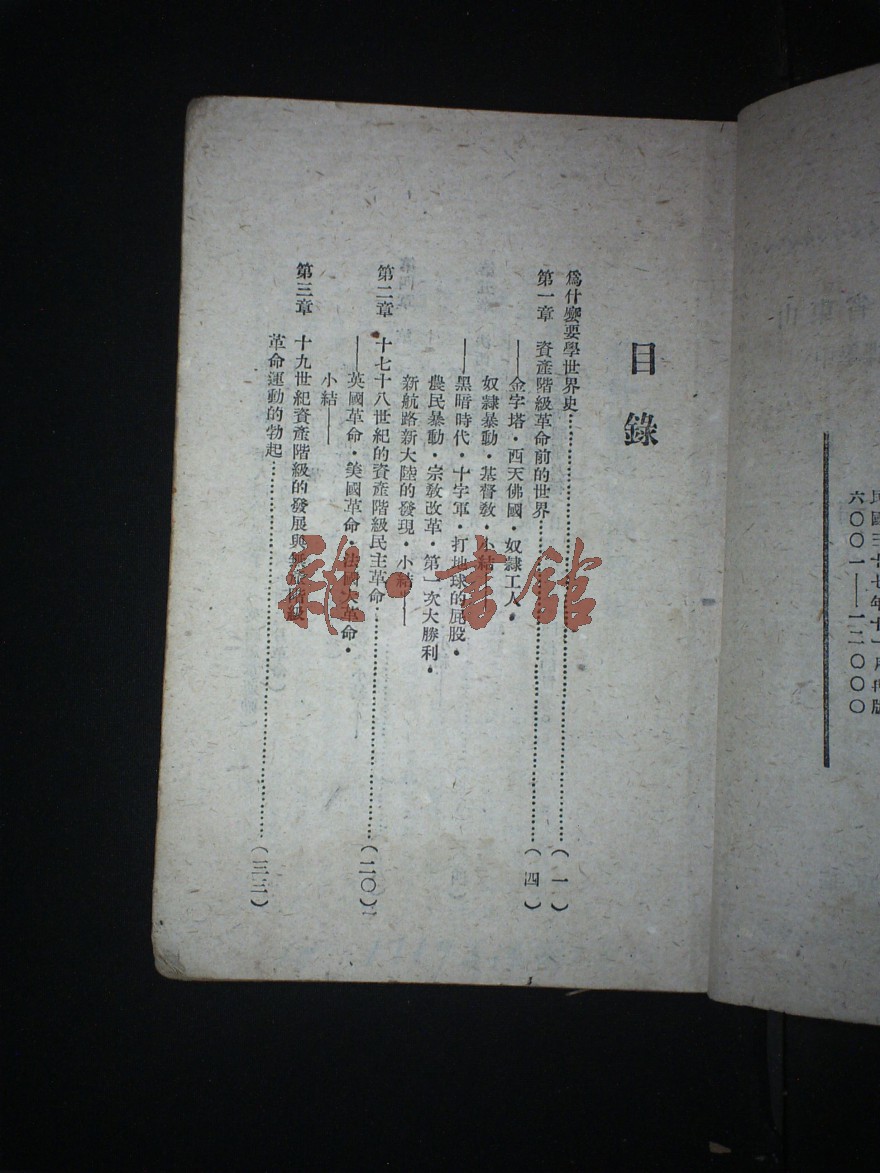 民國三十七年十一月再版
六〇〇一——一二〇〇〇
目錄
爲什麼要學世界史……(一)
第一章 資產階級革命前的世界……(四)
——金字塔·西天佛國·奴隸工人·
奴隸暴動·基督教·小結——
——黑暗時代·十字軍·打地球的屁股·
農民暴動·宗教改革·第一次大勝利·
新航路新大陸的發現·小結——
第二章 十七十八世紀的資產階級民主革命……(二〇)
——英國革命·美國革命·法國大革命·
小結——
第三章 十九世紀資產階級的發展與無產階級
革命運動的勃起……(三三)
雜·書館